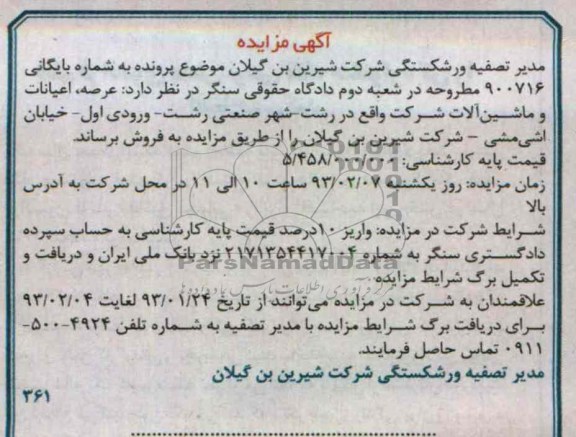 آگهی مزایده
مدیر تصفیه ورشکستگی شرکت شیرین بن گیلان موضوع پرونده به شماره بایگانی
۹۰۰۷۱۶ مطروحه در شعبه دوم دادگاه حقوقی سنگر در نظر دارد: عرصه، اعیانات
و ماشین‌آلات شرکت واقع در رشت- شهر صنعتی رشت- ورودی اول- خیابان
اشی‌مشی - شرکت شیرین بن گیلان را از طریق مزایده به فروش برساند.
قیمت پایه کارشناسی:
زمان مزایده: روز یکشنبه ۹۳/۰۲/۰۷ ساعت ۱۰ الی ۱۱ در محل شرکت به آدرس
بالا
شرایط شرکت در مزایده: واریز ۱۰درصد قیمت پایه کارشناسی به حساب سپرده
دادگستری سنگر به شماره ۲۱۷۱۳۵۴۴۱۷۰۰۴ نزد بانک ملی ایران و دریافت و
ParsNamadData
تکمیل برگ شرایط مزایده
علاقمندان به شرکت در مزایده می‌توانند از تاریخ ۹۳/۰۱/۲۴ لغایت ۹۳/۰۲/۰۴
برای دریافت برگ شرایط مزایده با مدیر تصفیه به شماره تلفن ۴۹۲۴-۵۰۰-
۰۹۱۱ تماس حاصل فرمایند.
مدیر تصفیه ورشکستگی شرکت شیرین بن گیلان
۳۶۱